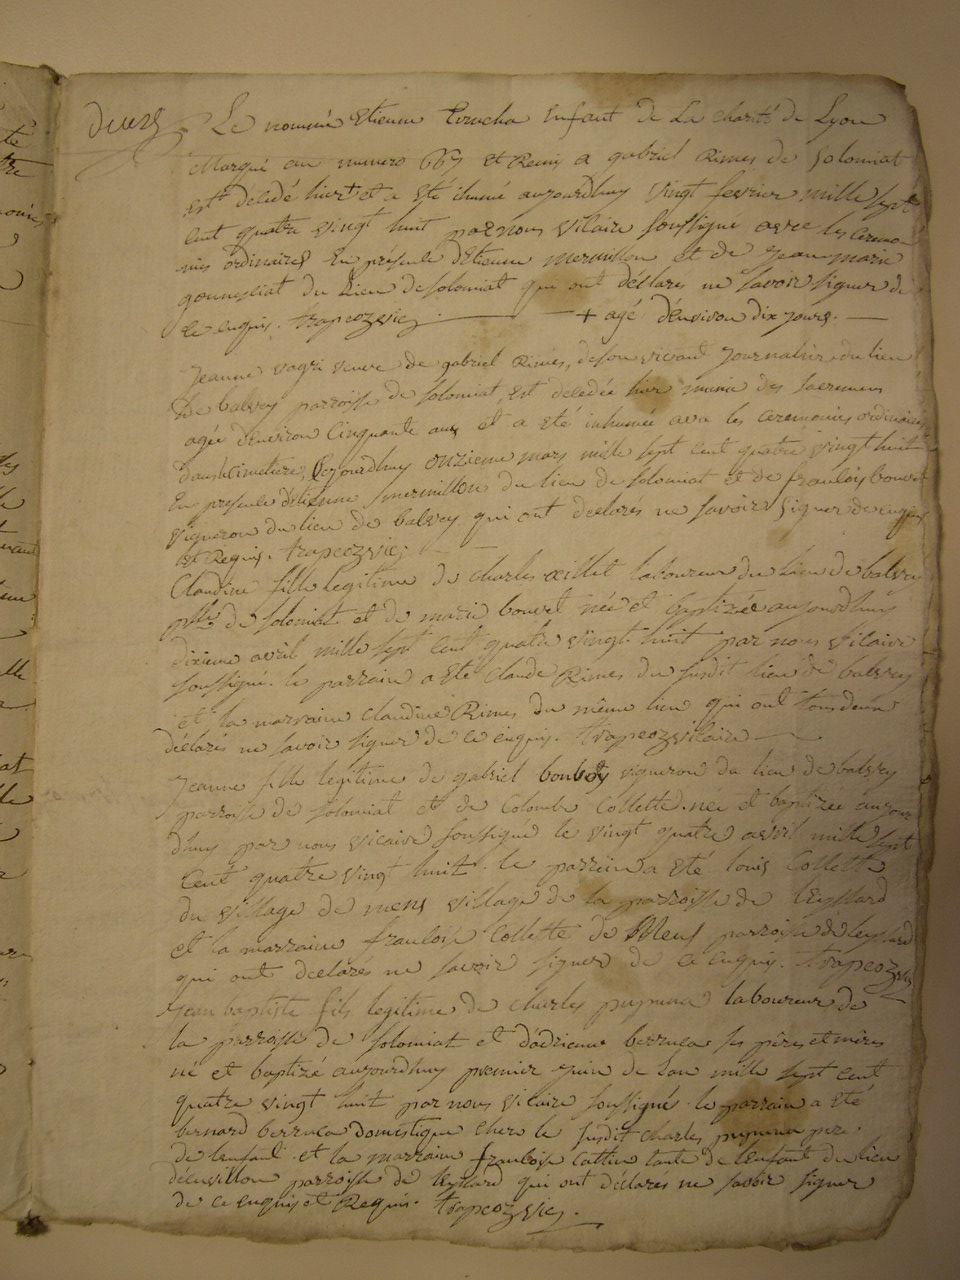 Le nommé Etienne enfant de La charité de Lyon
Marqué au numero 667 et Remis a gabriel Rimes de solomiat
est decedé hier + et a eté ihumé aujourdhuy vingt fevrier mille sept
cent quatre vingt huit par nous vicaire soussigné avec les ceremo
nies ordinaires En présence dEtienne mermillon et de jean marie
du Lieu de solomiat qui ont déclarés ne savoir signer de
ce enquis. trapeoz vic. + agé d'environ dix jours.
Jeanne veuve de gabriel Rimes, de son vivant journalier du lieu
De balvey parroisse de solomiat, est decedée hier munie des sacremens
agée denviron Cinquante ans et a eté inhumée avec les ceremonies ordinaires
dans le cimetiere, cejourdhuy onzieme mars mille sept cent quatre vingt huit
En presence détienne mermillon du lieu de solomiat et de francois bouvet
vigneron du lieu de balvey qui ont declarés ne savoir signer de enquis
et Requis. trapeoz vic.
Claudine fille Legitime de charles œillet laboureur du Lieu de balvey
psse de solomiat et de marie bouvet née et baptizée aujourdhuy
dixieme avril mille sept cent quatre vingt huit par nous vicaire
soussigné. le parrain a eté claude Rimes du susdit lieu de balvey
et la marraine claudine Rimes du même lieu qui ont tous deux
déclarés ne savoir signer de ce enquis. trapeoz vicaire
Jeanne fille legitime de gabriel vigneron du lieu de balvey
parroisse de solomiat et de Colombe Collette. née et baptizée aujour
dhuy par nous vicaire soussigné le vingt quatre avril mille sept
Cent quatre vingt huit. le parrain a eté louis Collette
du village de mens village de la parroisse de leyssard
et la marraine francoise Collette de Mens parroisse de leyssard
qui ont declarés ne savoir signer de ce enquis. trapeoz vic.
jean baptiste fils legitime de charles laboureur de
la parroisse de solomiat et d'adrienne berruca ses pères et mères
né et baptizé aujourdhuy premier juin de Lan mille sept cent
quatre vingt huit par nous vicaire soussigné. le parrain a eté
bernard berruca domestique chez le susdit charles pere
de lenfant. et la marraine francoise Cattin tante de lenfant du lieu
parroisse de leyssard qui ont déclarés ne savoir signer
de ce enquis et Requis. trapeoz vic.